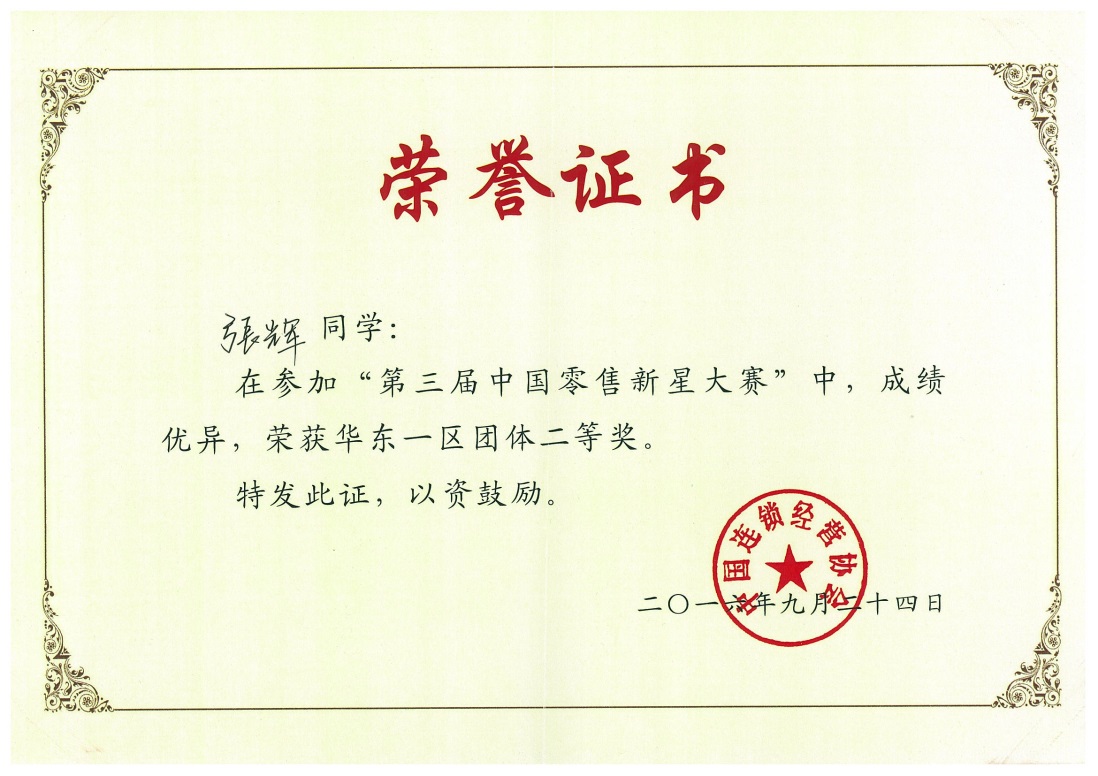 荣誉证书
張辉 同学：
在参加“第三届中国零售新星大赛”中，成绩
优异，荣获华东一区团体二等奖。
特发此证，以资鼓励。
中国连锁经营协会
二〇一六年九月二十四日